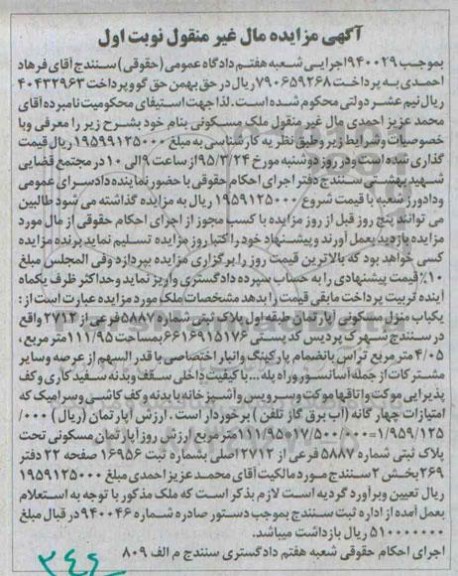 آگهی مزایده مال غیر منقول نوبت اول
بموجب ۹۴۰۰۲۹اجرایی شعبه هفتم دادگاه عمومی (حقوقی) سنندج آقای فرهاد
احمدی به پرداخت ۷۹۰۶۵۹۲۶۸ ریال در حق بهمن حق گو و پرداخت ۴۰۴۳۲۹۶۳
ریال نیم عشر دولتی محکوم شده است. لذا جهت استیفای محکومیت نامبرده آقای
محمد عزیز احمدی مال غیر منقول ملک مسکونی بنام خود بشرح زیر را معرفی و با
خصوصیات و شرایط زیر و طبق نظریه کارشناسی به مبلغ ۱۹۵۹۹۱۲۵۰۰۰ ریال قیمت
گذاری شده است و در روز دوشنبه مورخ ۹۵/۳/۲۴ از ساعت ۹ الی ۱۰ در مجتمع قضایی
شهید بهشتی سنندج دفتر اجرای احکام حقوقی با حضور نماینده دادسرای عمومی
و دادورز شعبه با قیمت شروع ۱۹۵۹۱۲۵۰۰۰ ریال به مزایده گذاشته می شود طالبین
می توانند پنج روز قبل از روز مزایده با کسب مجوز از اجرای احکام حقوقی از مال مورد
مزایده بازدید بعمل آورند و پیشنهاد خود را کتبا روز مزایده تسلیم نماید برنده مزایده
کسی خواهد بود که بالاترین قیمت روز را برگزاری مزایده بپردازد وفی المجلس مبلغ
۱۰٪ قیمت پیشنهادی را به حساب سپرده دادگستری واریز نماید و حداکثر ظرف یکماه
آینده تربیت پرداخت مابقی قیمت را بدهد مشخصات ملک مورد مزایده عبارت است از :
یکباب منزل مسکونی آپارتمان طبقه اول پلاک ثبتی شماره ۵۸۸۷ فرعی از ۲۷۱۲ واقع
در سنندج شهرک پردیس کد پستی ۶۶۱۶۹۱۵۱۷۶ بمساحت ۱۱۱/۹۵ متر مربع ،
۴/۰۵ متر مربع تراس باانضمام پارکینگ و انبار اختصاصی با قدر السهم از عرصه و سایر
مشترکات از جمله آسانسور و راه پله ... با کیفیت داخلی سقف و بدنه سفید کاری و کف
پذیرایی موکت و اتاقها موکت و سرویس و آشپزخانه با بدنه و کف کاشی و سرامیک که
امتیازات چهار گانه (آب برق گاز تلفن ) برخوردار است . ارزش آپارتمان (ریال ) ۰۰۰/
۱/۹۵۹/۱۲۵=۱۱۱/۹۵*۱۷/۵۰۰/۰۰۰ متر مربع / ارزش روز آپارتمان مسکونی تحت
پلاک ثبتی شماره ۵۸۸۷ فرعی از ۲۷۱۲ اصلی بشماره ثبت ۱۶۹۵۶ صفحه ۲۲ دفتر
۲۶۹ بخش ۲ سنندج مورد مالکیت آقای محمد عزیز احمدی مبلغ ۱۹۵۹۱۲۵۰۰۰
ریال تعیین و برآورد گردیه است لازم بذکر است که ملک مذکور با توجه به استعلام
بعمل آمده از اداره ثبت سنندج بموجب دستور صادره شماره ۹۴۰۰۴۶ در قبال مبلغ
۵۱۰۰۰۰۰۰۰ ریال بازداشت میباشد.
اجرای احکام حقوقی شعبه هفتم دادگستری سنندج م الف ۸۰۹
۲۴۶